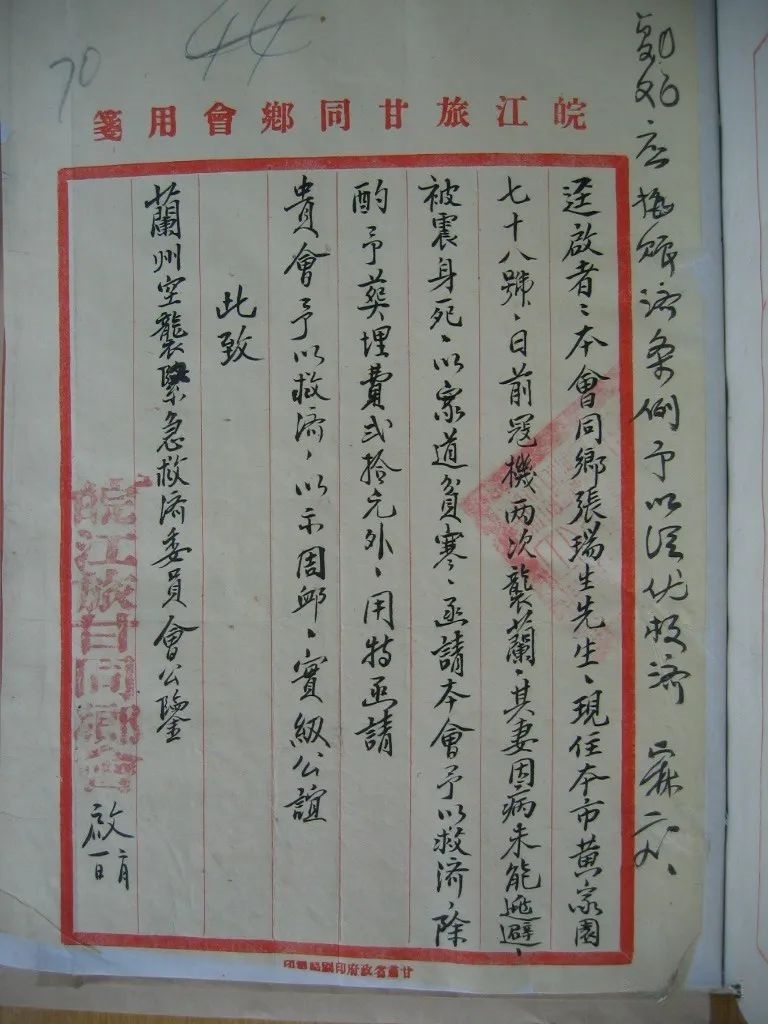 44
70
皖江旅甘同鄉會用箋
應據賑濟条例予以從优救濟
逕啟者：本會同鄉張瑞生先生、現住本市黄家園
七十八號、日前冦機两次襲蘭、其妻因病未能逃避、
被震身死、以家道貧寒、函請本會予以救濟、除
酌予葬埋費弍拾元外、用特函請
貴會予以救濟，以示周卹、實級公誼
此致
蘭州空襲緊急救濟委員會公鑒
皖江旅甘同鄉會
啟
甘肅省政府印刷局製印